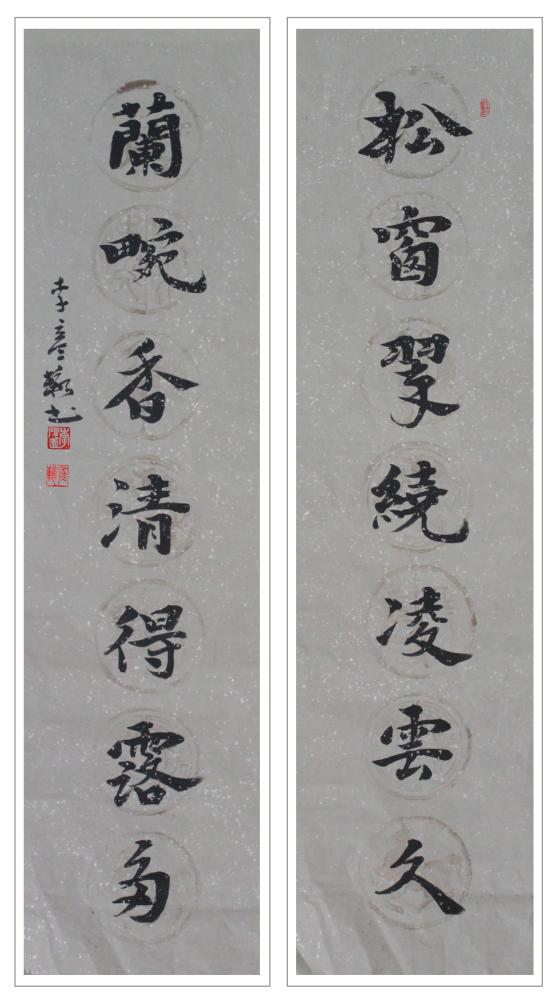 松窗翠繞凌雲久
蘭畹香清得露多
李彦书